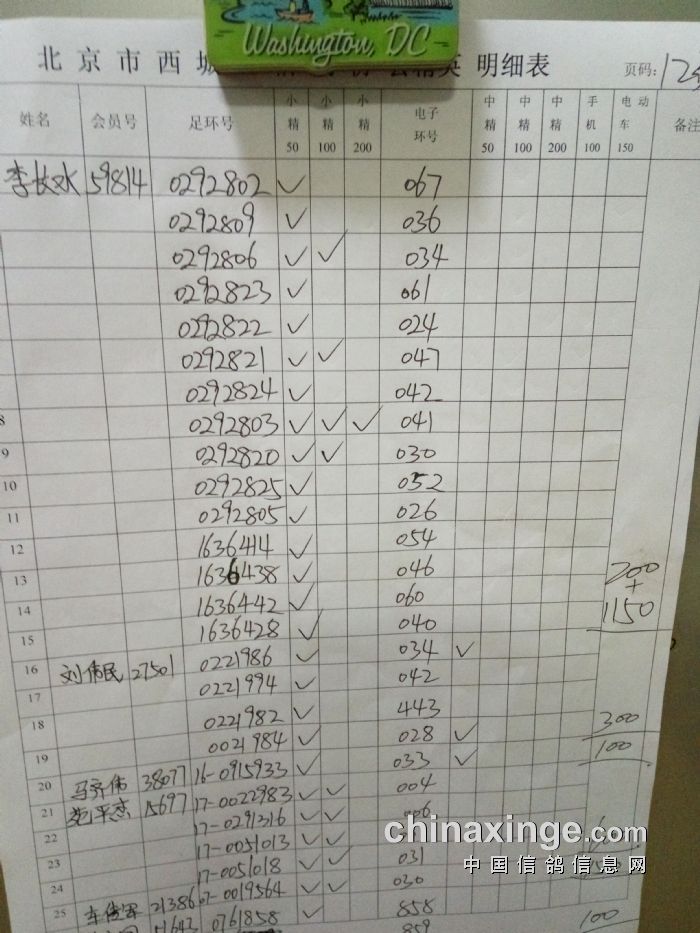 Washington, DC
北京市西城 明细表 页码:
姓名 会员号 足环号 小精50 小精100 小精200 电子环号 中精50 中精100 中精200 手机100 电动车150 备注
李长水 59814 0292802 ✓ 067
0292809 ✓ 036
0292806 ✓ ✓ 034
0292823 ✓ 061
0292822 ✓ 024
0292821 ✓ ✓ 047
0292824 ✓ 042
8 0292803 ✓ ✓ ✓ 041
9 0292820 ✓ ✓ 030
10 0292825 ✓ 052
11 0292805 ✓ 026
12 1636414 ✓ 054
13 1636438 ✓ 046 200
14 1636442 ✓ 060 +
15 1636428 ✓ 040 1150
16 刘伟民 27501 0221986 ✓ 034 ✓
17 0221994 ✓ 042
18 0221982 ✓ 443 300
19 0021984 ✓ 028 ✓ 100
20 马齐伟 38077 16-0915933 ✓ 033 ✓
21 范平杰 15697 17-0022983 ✓ ✓ 004
22 17-0291316 ✓ ✓ 006
23 17-0051013 ✓ ✓
24 17-0051018 ✓ ✓ 031
25 21386 07-0019564 ✓ ✓ 030
0761858 ✓ 858 100
859
chinaxinge.com
中国信鸽信息网